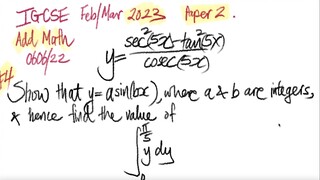 IGCSE Feb/Mar 2023 Paper 2.
Add Math
0606/22
y = sec²(5x) - tan²(5x) / cosec(5x)
#4
Show that y = a sin(bx), where a & b are integers,
& hence find the value of
∫₀^(π/5) y dy